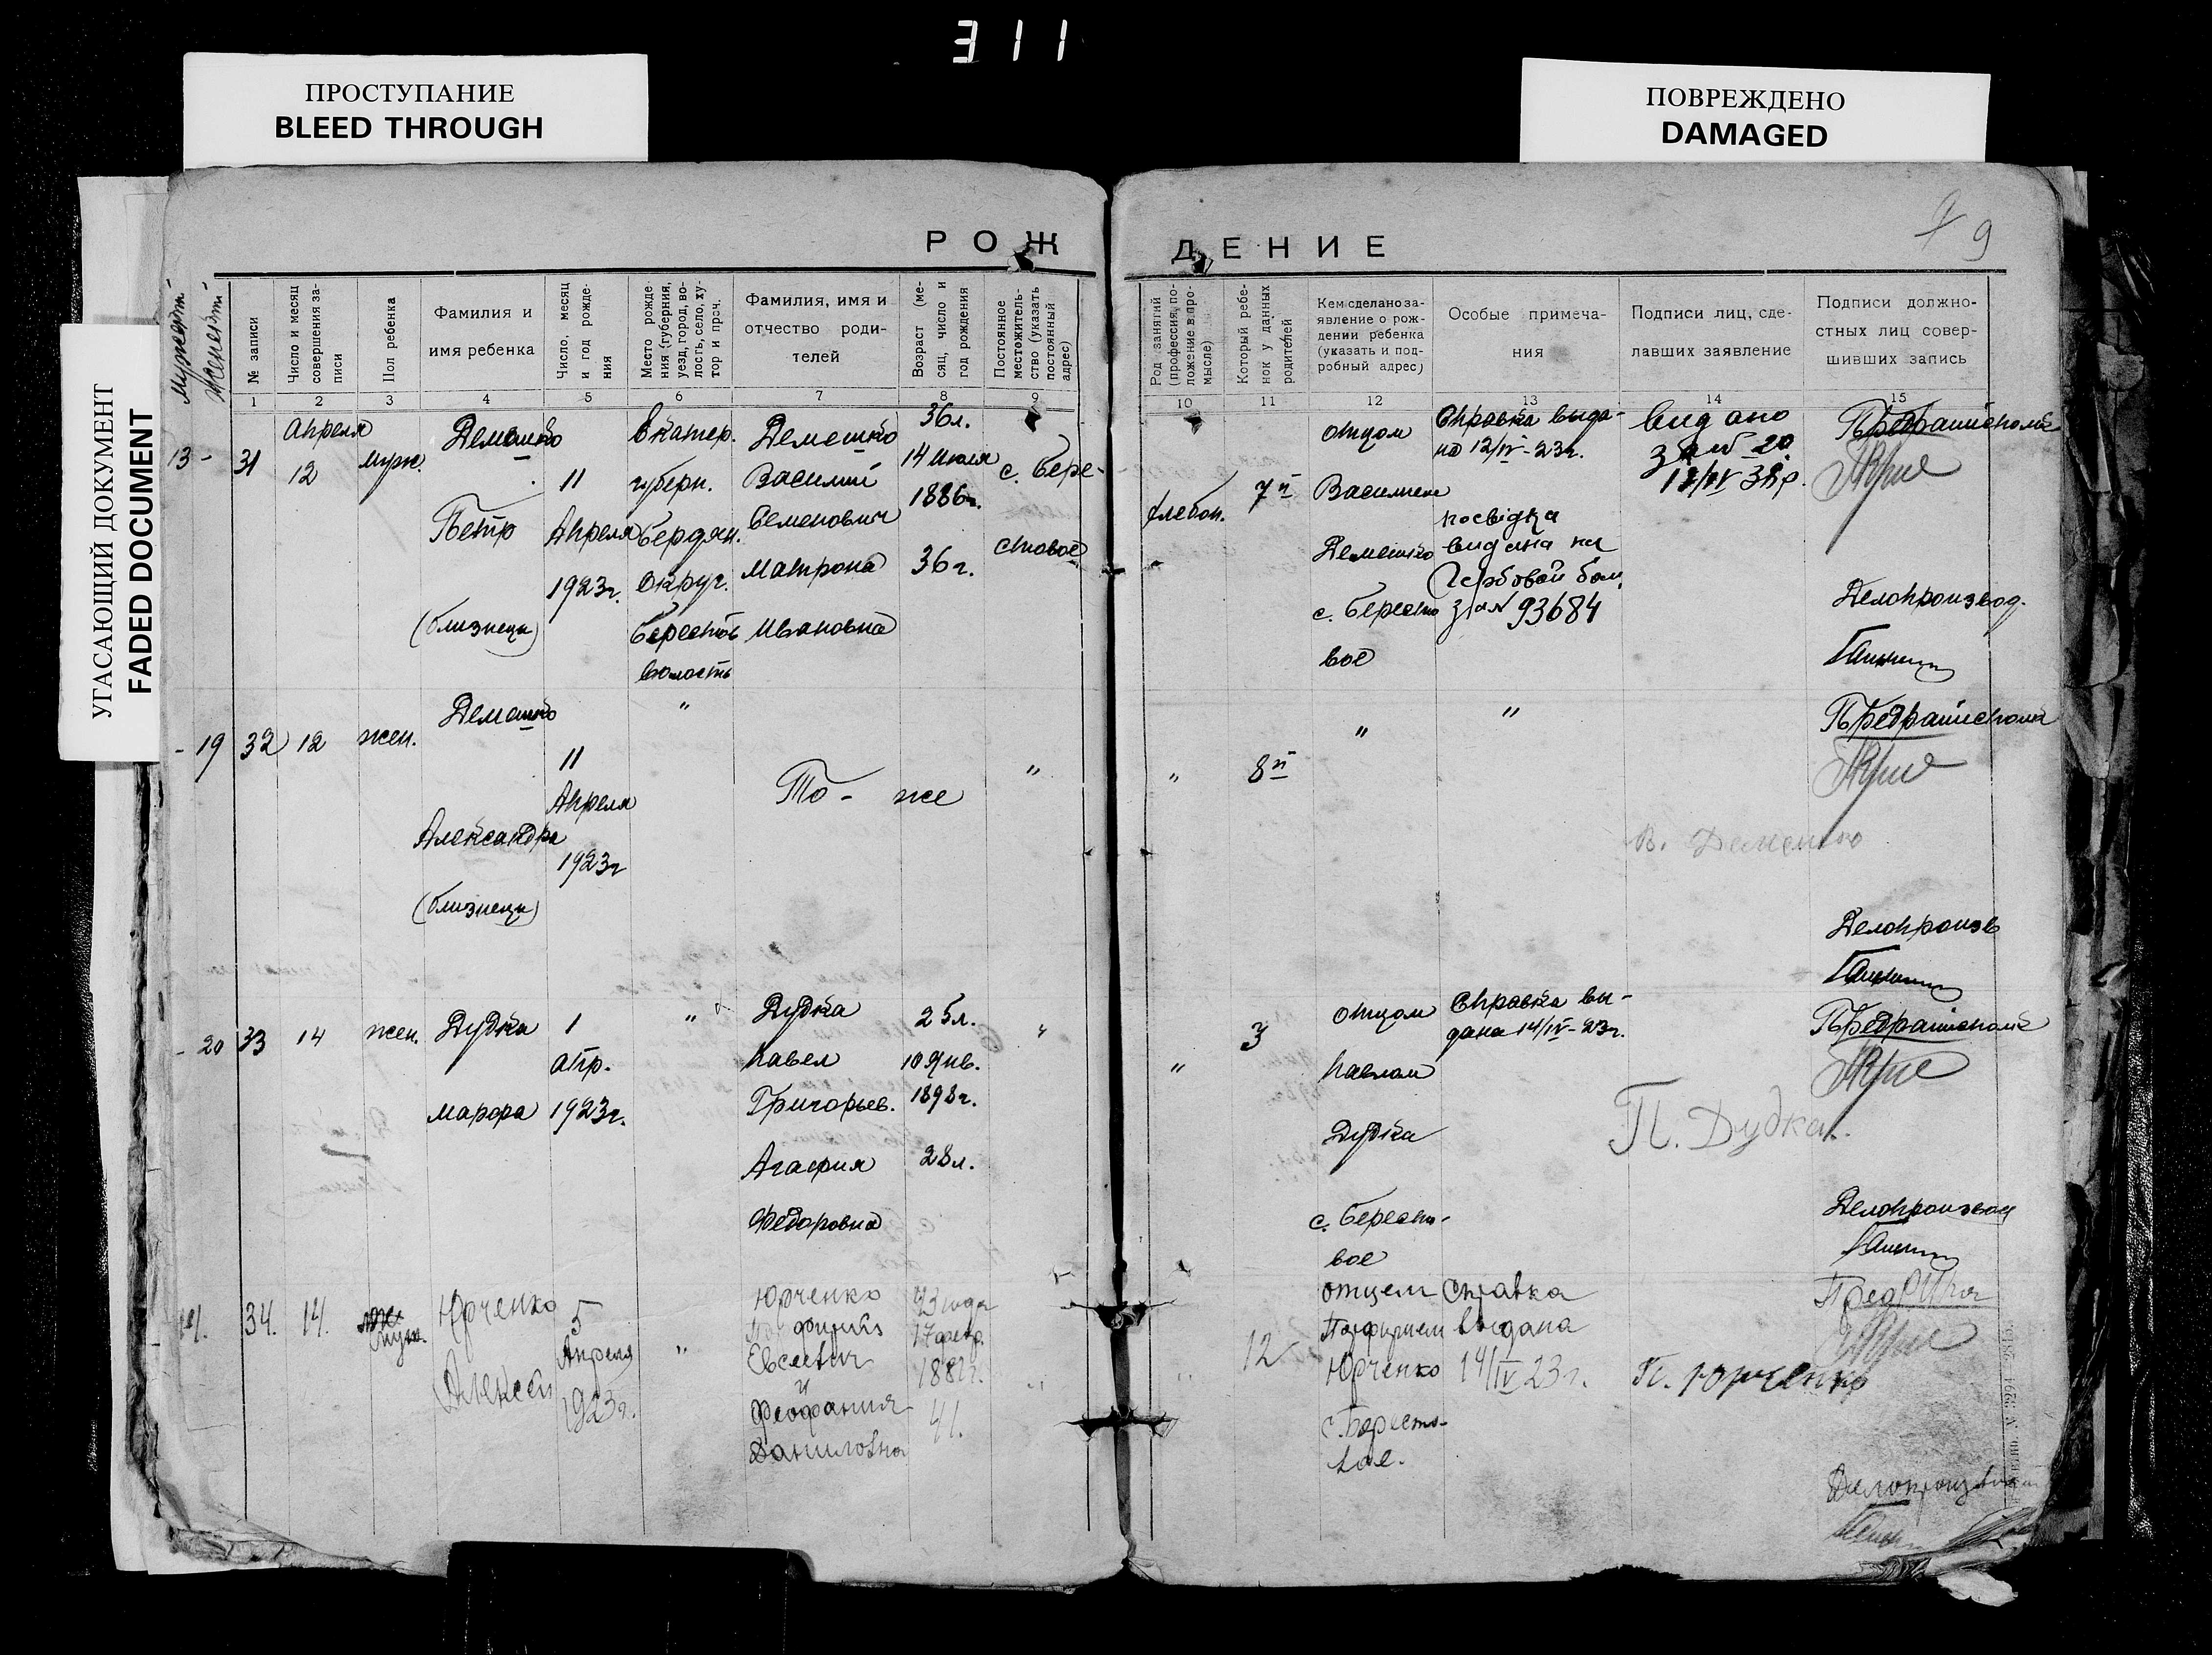 311
ПРОСТУПАНИЕ
BLEED THROUGH
ПОВРЕЖДЕНО
DAMAGED
УГАСАЮЩИЙ ДОКУМЕНТ
FADED DOCUMENT
9
РОЖДЕНИЕ
№ записи
Число и месяц
совершения за-
писи
Пол ребенка
Фамилия и
имя ребенка
Число, месяц
и год рожде-
ния
Место рожде-
ния (губерния,
уезд, город, во-
лость, село, ху-
тор и проч.
Фамилия, имя и
отчество роди-
телей
Возраст (ме-
сяц, число и
год рождения
Постоянное
местожитель-
ство (указать
постоянный
адрес)
Род занятий
(профессия, по-
ложение в про-
мысле)
Который ребе-
нок у данных
родителей
Кем сделано за-
явление о рож-
дении ребенка
(указать и под-
робный адрес)
Особые примеча-
ния
Подписи лиц, сде-
лавших заявление
Подписи должно-
стных лиц совер-
шивших запись
1 2 3 4 5 6 7 8 9 10 11 12 13 14 15
13 -
31
Апреля
12
муж.
Демешко
Петр
(близнецы)
11
Апреля
1923г.
Екатер.
губерн.
Бердян.
Округ.
Берестов
волость
Демешко
Василий
Семенович
Матрона
Ивановна
36л.
14 Июля
1886г.
36г.
с. Бере-
стовое
хлебоп.
7й
отцом
Василием
Демешко
с. Бересто
вое
Справка выда-
на 12/IV-23г.
посвідка
видана на
Гербовой бом.
за № 93684
видано
за № 20
Предрайисполк
Делопроизвод.
- 19
32
12
жен.
Демешко
Александра
(близнецы)
11
Апреля
1923г
"
То - же
"
"
8й
"
"
В. Демешко
Предрайисполк
Делопроизв
- 20
33
14
жен.
Дудка
Марфа
1
апр.
1923г.
"
Дудка
Павел
Григорьев.
Агафия
Федоровна
25л.
10 Янв.
1898г.
28л.
"
"
3
отцом
Павлом
Дудка
с. Бересто-
вое
Справка вы-
дана 14/IV-23г.
П. Дудка
Предрайисполк
Делопроизвод
34.
14.
муж.
Юрченко
Алексей
5
Апреля
1923г.
"
Юрченко
Порфирий
Евсеевич
и
Феофания
Даниловна
43 года
17 февр.
41.
"
"
12
отцем
Порфирием
Юрченко
с. Бересто-
вое.
Справка
выдана
14/IV 23г.
П. Юрченко
Делопроизвод